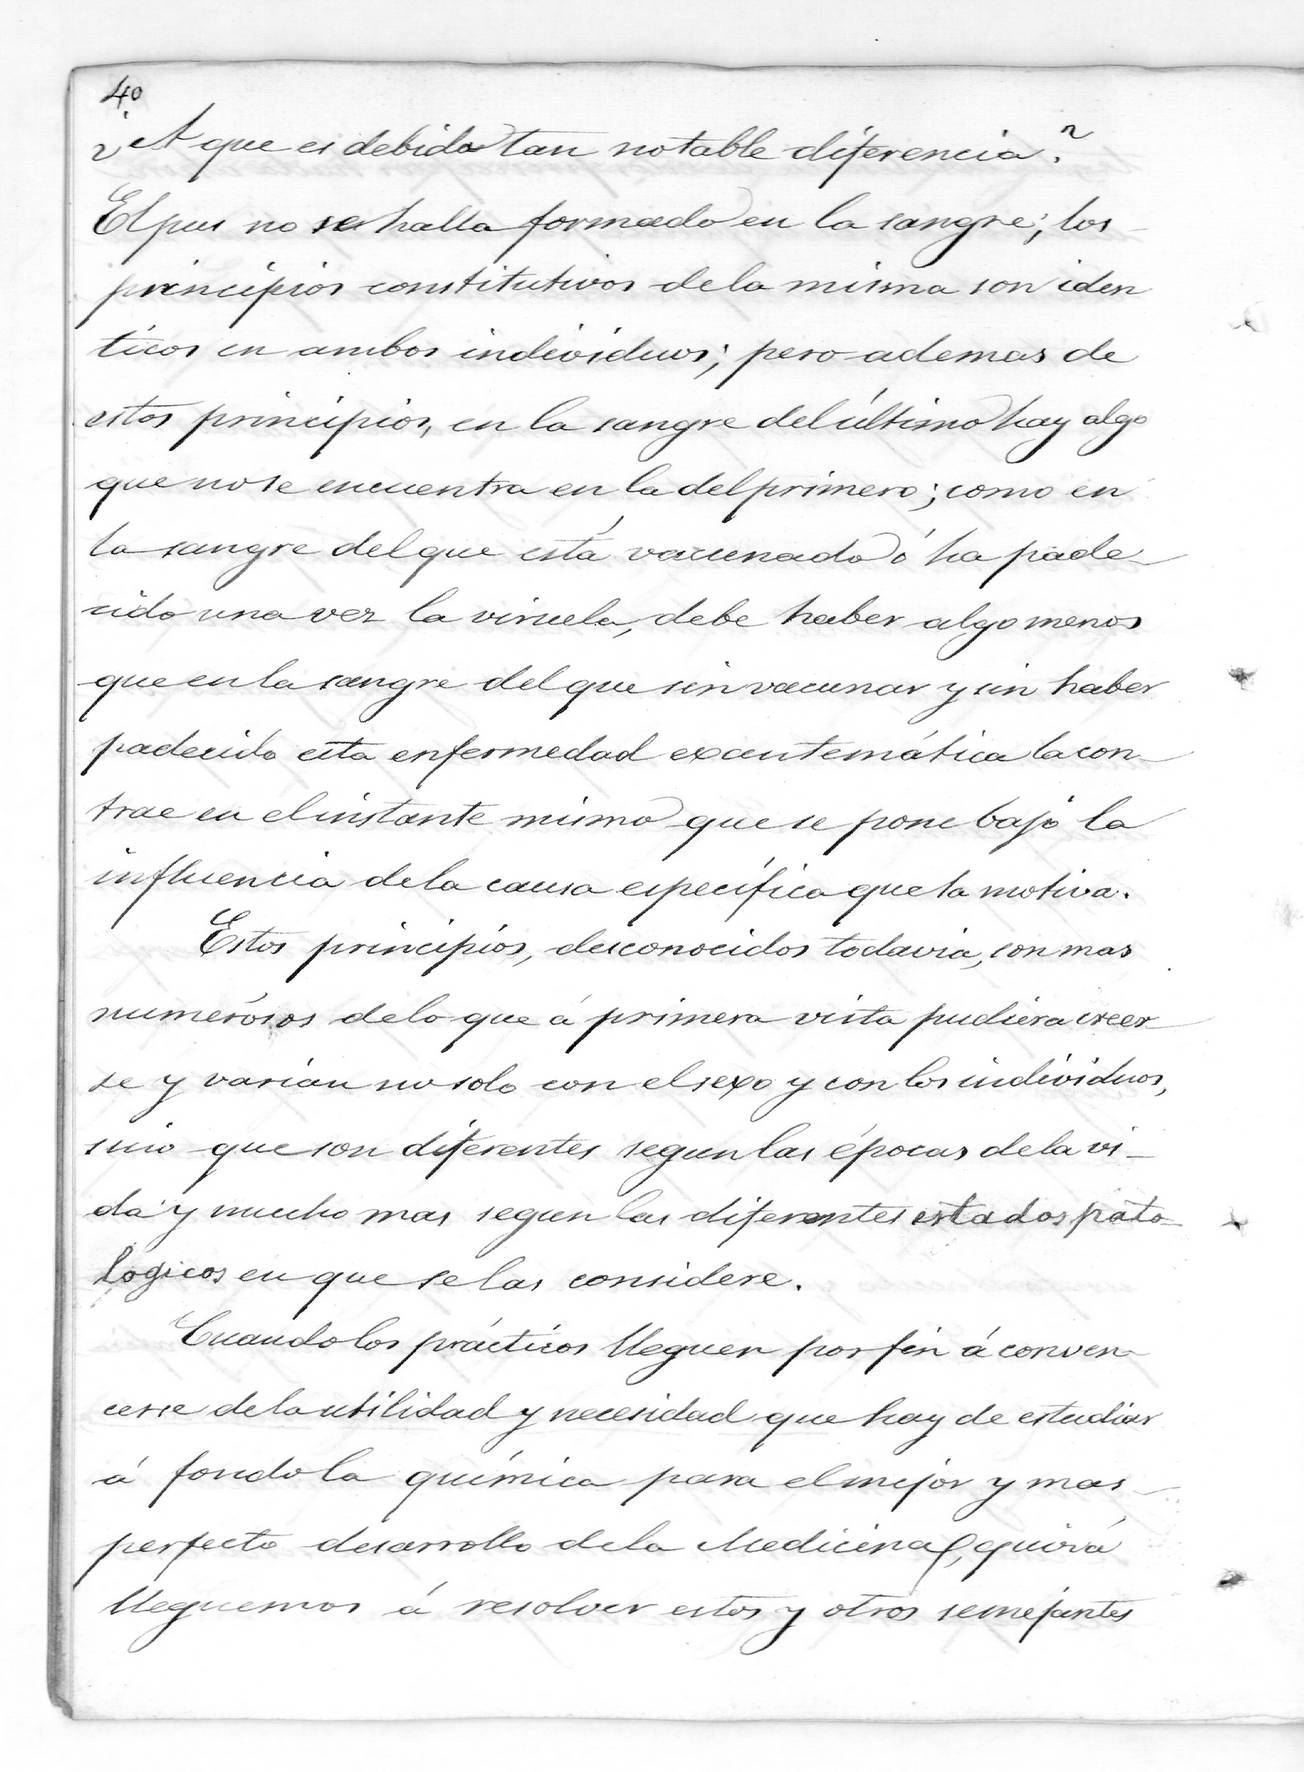 40
¿A que es debida tan notable diferencia?
El pus no se halla formado en la sangre; los
principios constitutivos de la misma son iden
ticos en ambos individuos; pero ademas de
estos principios, en la sangre del último hay algo
que no se encuentra en la del primero; como en
la sangre del que está vacunado ó ha pade-
cido una vez la viruela, debe haber algo menos
que en la sangre del que sin vacunar y sin haber
padecido esta enfermedad exantemática la con-
trae en el instante mismo que se pone bajo la
influencia de la causa específica que la motiva.
Estos principios, desconocidos todavia, son mas
numerosos de lo que á primera vista pudiera creer-
se y varian no solo con el sexo y con los individuos,
sino que son diferentes segun las épocas de la vi-
da y mucho mas segun los diferentes estados pato-
logicos en que se las considere.
Cuando los prácticos lleguen por fin á conven-
cerse de la utilidad y necesidad que hay de estudiar
á fondo la química para el mejor y mas
perfecto desarrollo de la Medicina, quizá
lleguemos á resolver estos y otros semejantes